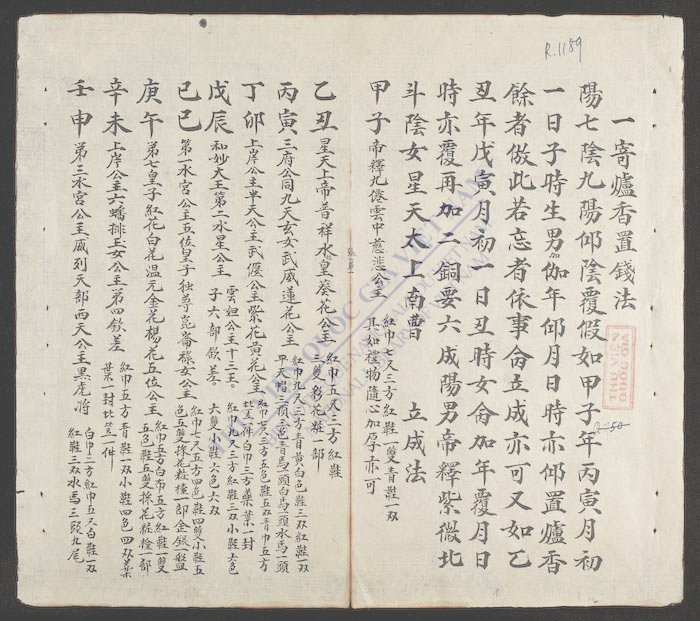 R.1159
一寄爐香置錢法
陽七陰九陽仰陰覆假如甲子年丙寅月初
一日子時生男命加年仰月日時亦仰置爐香
餘者倣此若忘者依事命立成亦可又如乙
丑年戊寅月初一日丑時女命加年覆月日
時亦覆再加二銅要六成陽男帝釋紫微北
斗陰女星天太上南曹 立成法
甲子 帝釋九僊雲中慈悲公主 紅巾七又三方紅鞋一雙青鞋一双
其如禮物隨心加厚亦可
乙丑 星天上帝普祥水皇葵花公主 紅巾五又三方紅鞋
三雙彩花粧一部
丙寅 三府公同九天玄女武威蓮花公主 紅巾九又三方青黃白色鞋三双紅鞋一双
平天帽三頂三色青馬一頭白馬一頭水馬一頭
丁卯 上岸公主半天公主武優公主紫花黃花公主 紅巾七又三方五色鞋五双青巾五方
白巾三方葉葉一封
戊辰 和妙大王第二水星公主 雲妲公主十三主。
子六部欽差 紅巾九又三方紅鞋三双小鞋六色
六雙小鞋六色六双
己巳 第一水宮公主五位皇子獨尊崑崙祿女公主 紅巾七又五方四色鞋四雙小鞋五
色五雙採花粧𥞖一部金銀一盤
庚午 第七皇子紅花白花溫元金花楊花五位公主 紅巾五方白布五方紅鞋一雙
五色鞋五雙採花粧𥞖一部
辛未 上岸公主六蟠排玉女公主第四欽差 紅巾五方青鞋一双小鞋四色四双葉
葉一封比笠一件
壬申 第三水宮公主威列天部西天公主黑虎將 白巾三方紅巾五又白鞋一双
紅鞋三双水馬三頭九尾
THƯ VIỆN
QUỐC GIA